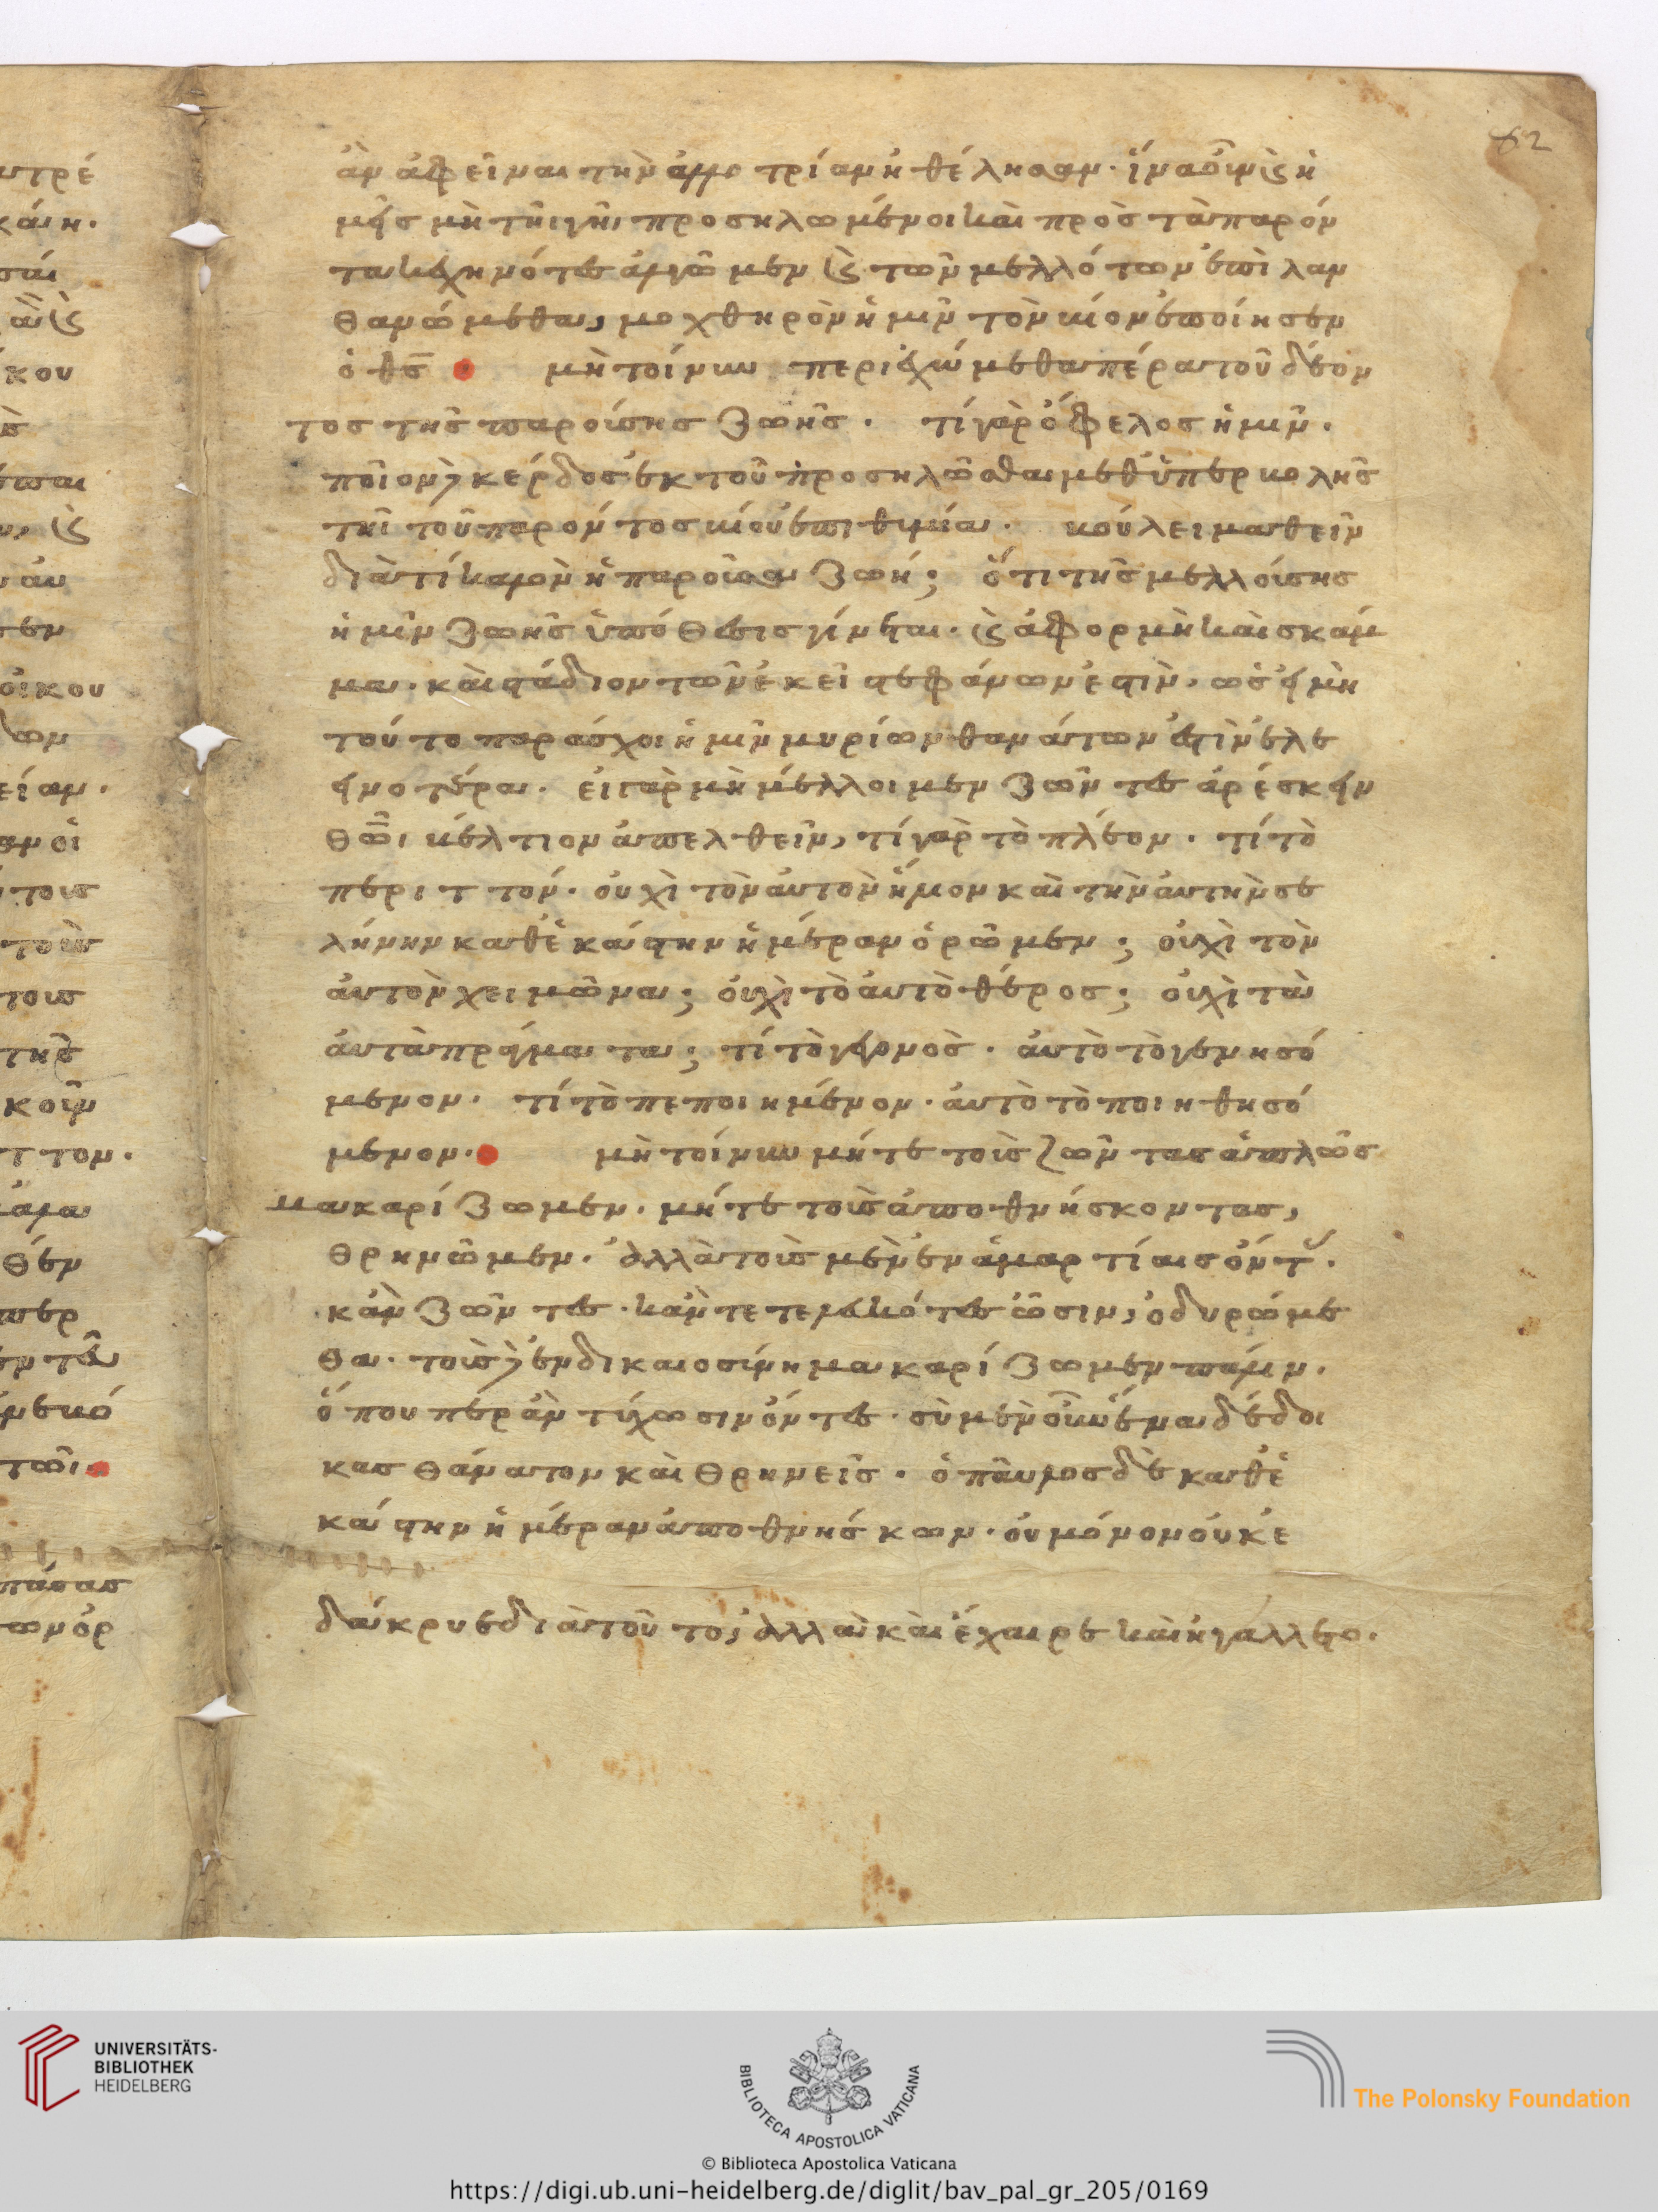 82
ἂν ἀφεῖναι τὴν ἀλλοτρίαν ἠθέλησαν. ἵνα οὖν καὶ ἡ
μεῖς μὴ τῆι γῆι προσηλωμένοι καὶ πρὸς τὰ παρόν
τα κεχηνότες ἀλγῶμεν καὶ τῶν μελλόντων ἐπιλαν
θανώμεθα, μοχθηρὸν ἡμῖν τὸν βίον ἐποίησεν
ὁ θς μὴ τοίνυν περιεχώμεθα πέρα τοῦ δέον
τος τῆς παρούσης ζωῆς. τί γὰρ ὄφελος ἡμῖν.
ποῖον δὲ κέρδος ἐκ τοῦ προσηλῶσθαι μεθ ὑπερβολῆς
τῆι τοῦ παρόντος βίου ἐπιθυμία. βούλει μαθεῖν
διὰ τί καλὸν ἡ παροῦσα ζωή; ὅτι τῆς μελλούσης
ἡμῖν ζωῆς ὑπόθεσις γίνεται. καὶ ἀφορμὴ καὶ σκάμ
μα. καὶ στάδιον τῶν ἐκεῖ στεφάνων ἐστὶν. ὡς εἰ μὴ
τούτο παράσχοι ἡμῖν μυρίων θανάτων ἐστὶν ἐλε
εινοτέρα. εἰ γὰρ μὴ μέλλοιμεν ζῶντες ἀρέσκειν
θῶι, βέλτιον ἀπελθεῖν, τί γὰρ τὸ πλέον. τί τὸ
περιττόν. οὐχὶ τὸν αὐτὸν ἥλιον καὶ τὴν αὐτὴν σε
λήνην καθ ἑκάστην ἡμέραν ὁρῶμεν; οὐχὶ τὸν
αὐτὸν χειμῶνα; οὐχὶ τὸ αὐτὸ θέρος; οὐχὶ τὰ
αὐτὰ πράγματα; τί τὸ γεγονὸς. αὐτὸ τὸ γενησό
μενον. τί τὸ πεποιημένον. αὐτὸ τὸ ποιηθησό
μενον. μὴ τοίνυν μήτε τοὺς ζῶντας ἁπλῶς
μακαρίζωμεν. μήτε τοὺς ἀποθνήσκοντας,
θρηνῶμεν. ἀλλὰ τοὺς μὲν ἐν ἁμαρτίαις ὄντ.
κἂν ζῶντες. κἂν τετελευκότες ὦσιν, ὀδυρώμε
θα. τοὺς δὲ ἐν δικαιοσύνη μακαρίζωμεν πάλιν.
ὅπουπερ ἂν τύχωσιν ὄντες. σὺ μὲν οὖν ἕνα δέδοι
κας θάνατον καὶ θρηνεῖς. ὁ παῦλος δὲ καθ ἑ
κάστην ἡμέραν ἀποθνήσκων. οὐ μόνον οὐκ ἐ
δάκρυε διὰ τοῦτο, ἀλλὰ καὶ ἔχαιρε καὶ ἠγάλλετο.
UNIVERSITÄTS-
BIBLIOTHEK
HEIDELBERG
BIBLIOTECA APOSTOLICA VATICANA
The Polonsky Foundation
© Biblioteca Apostolica Vaticana
https://digi.ub.uni-heidelberg.de/diglit/bav_pal_gr_205/0169